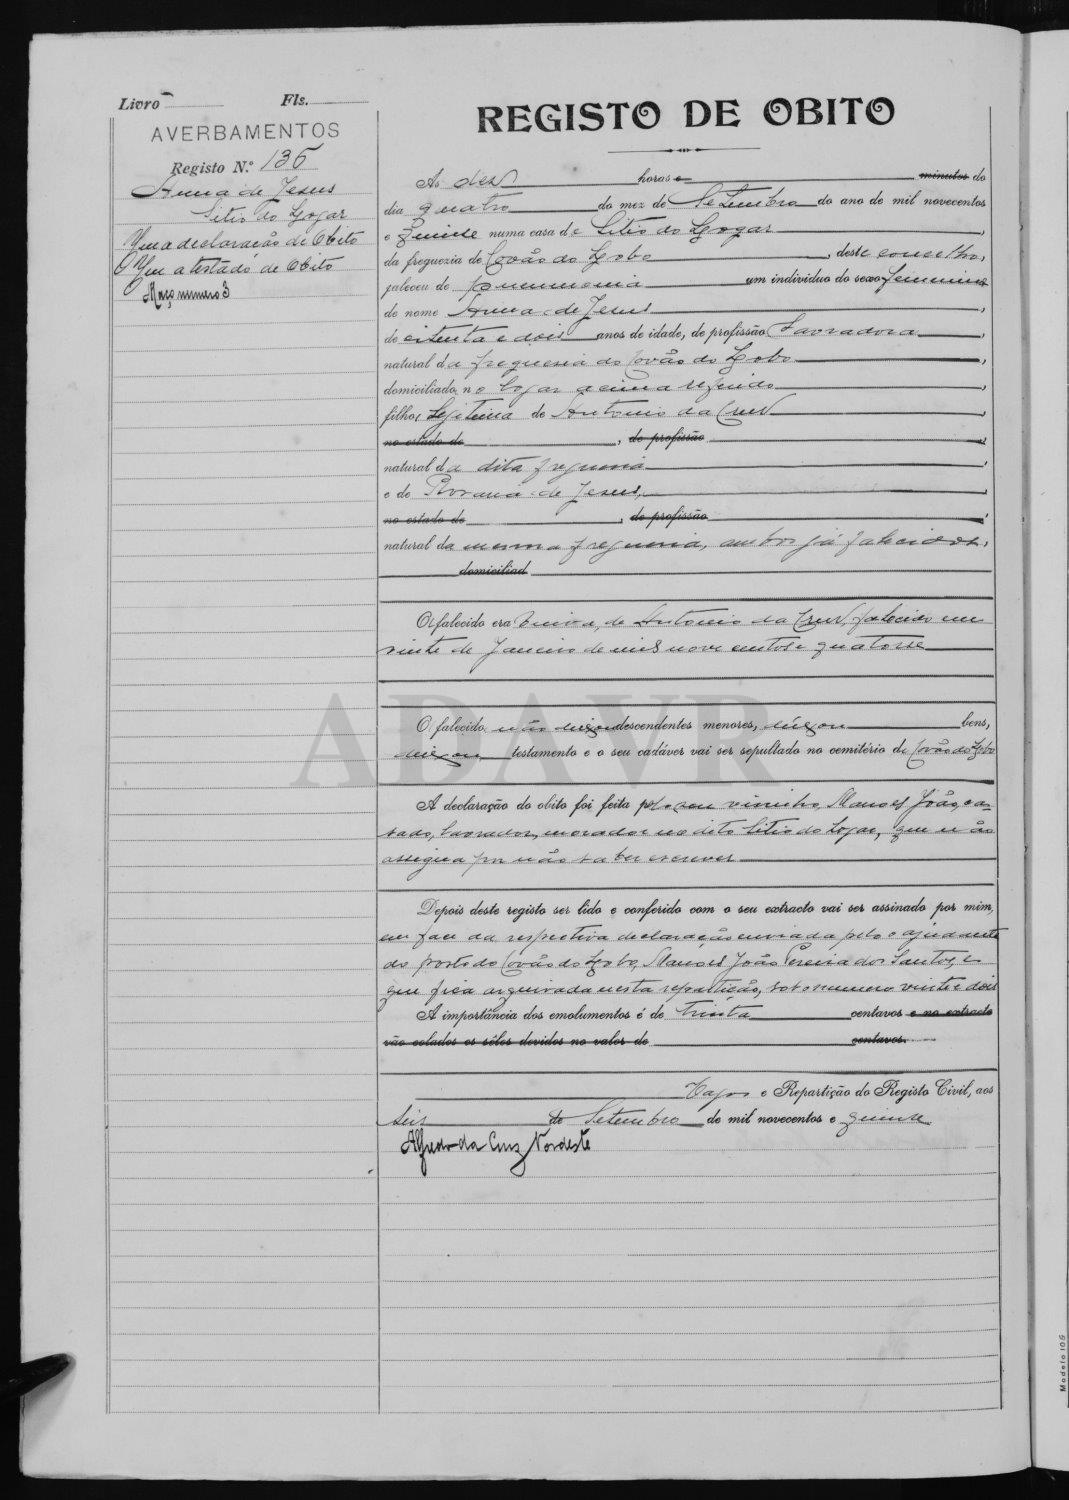 Livro Fls.
AVERBAMENTOS
Registo N.º 135
Anna de Jesus
Sitio do Logar
Uma declaração de Obito
Um atestado de Obito
Maço numero 3
REGISTO DE OBITO
Ás dez horas e minutos do
dia quatro do mez de Setembro do ano de mil novecentos
e quinze numa casa de Sitio do Logar,
da freguezia de Covão do Lobo, deste concelho,
faleceu de pneumonia um individuo do sexo feminino
de nome Anna de Jesus,
de oitenta e dois anos de idade, de profissão Lavradora,
natural da freguesia do Covão do Lobo,
domiciliado no logar acima referido,
filho, legitima de Antonio da Cruz,
no estado de, de profissão,
natural da dita freguesia,
e de Rosaria de Jesus,
no estado de, de profissão,
natural da mesma freguesia, ambos já falecidos,
domiciliad
O falecido era viuva, de Antonio da Cruz, falecido em
vinte de Janeiro de mil nove centos e quatorze
O falecido não deixou descendentes menores, deixou bens,
deixou testamento e o seu cadáver vai ser sepultado no cemitério de Covão do Lobo
A declaração do obito foi feita pelo seu visinho Manoel João, ca-
sado, lavrador, morador no dito Sitio do Logar, que não
assigna por não saber escrever
Depois deste registo ser lido e conferido com o seu extracto vai ser assinado por mim,
em face da respectiva declaração enviada pelo ajudante
do posto do Covão do Lobo, Manoel João Pereira dos Santos, e
que fica arquivada nesta repartição, sob o numero vinte e dois
A importância dos emolumentos é de trinta centavos e no extracto
vão colados os sêlos devidos no valor de centavos.
Vagos e Repartição do Registo Civil, aos
seis de Setembro de mil novecentos e quinze
Alfredo da Cruz Nordeste
ADAVR
Modelo 105